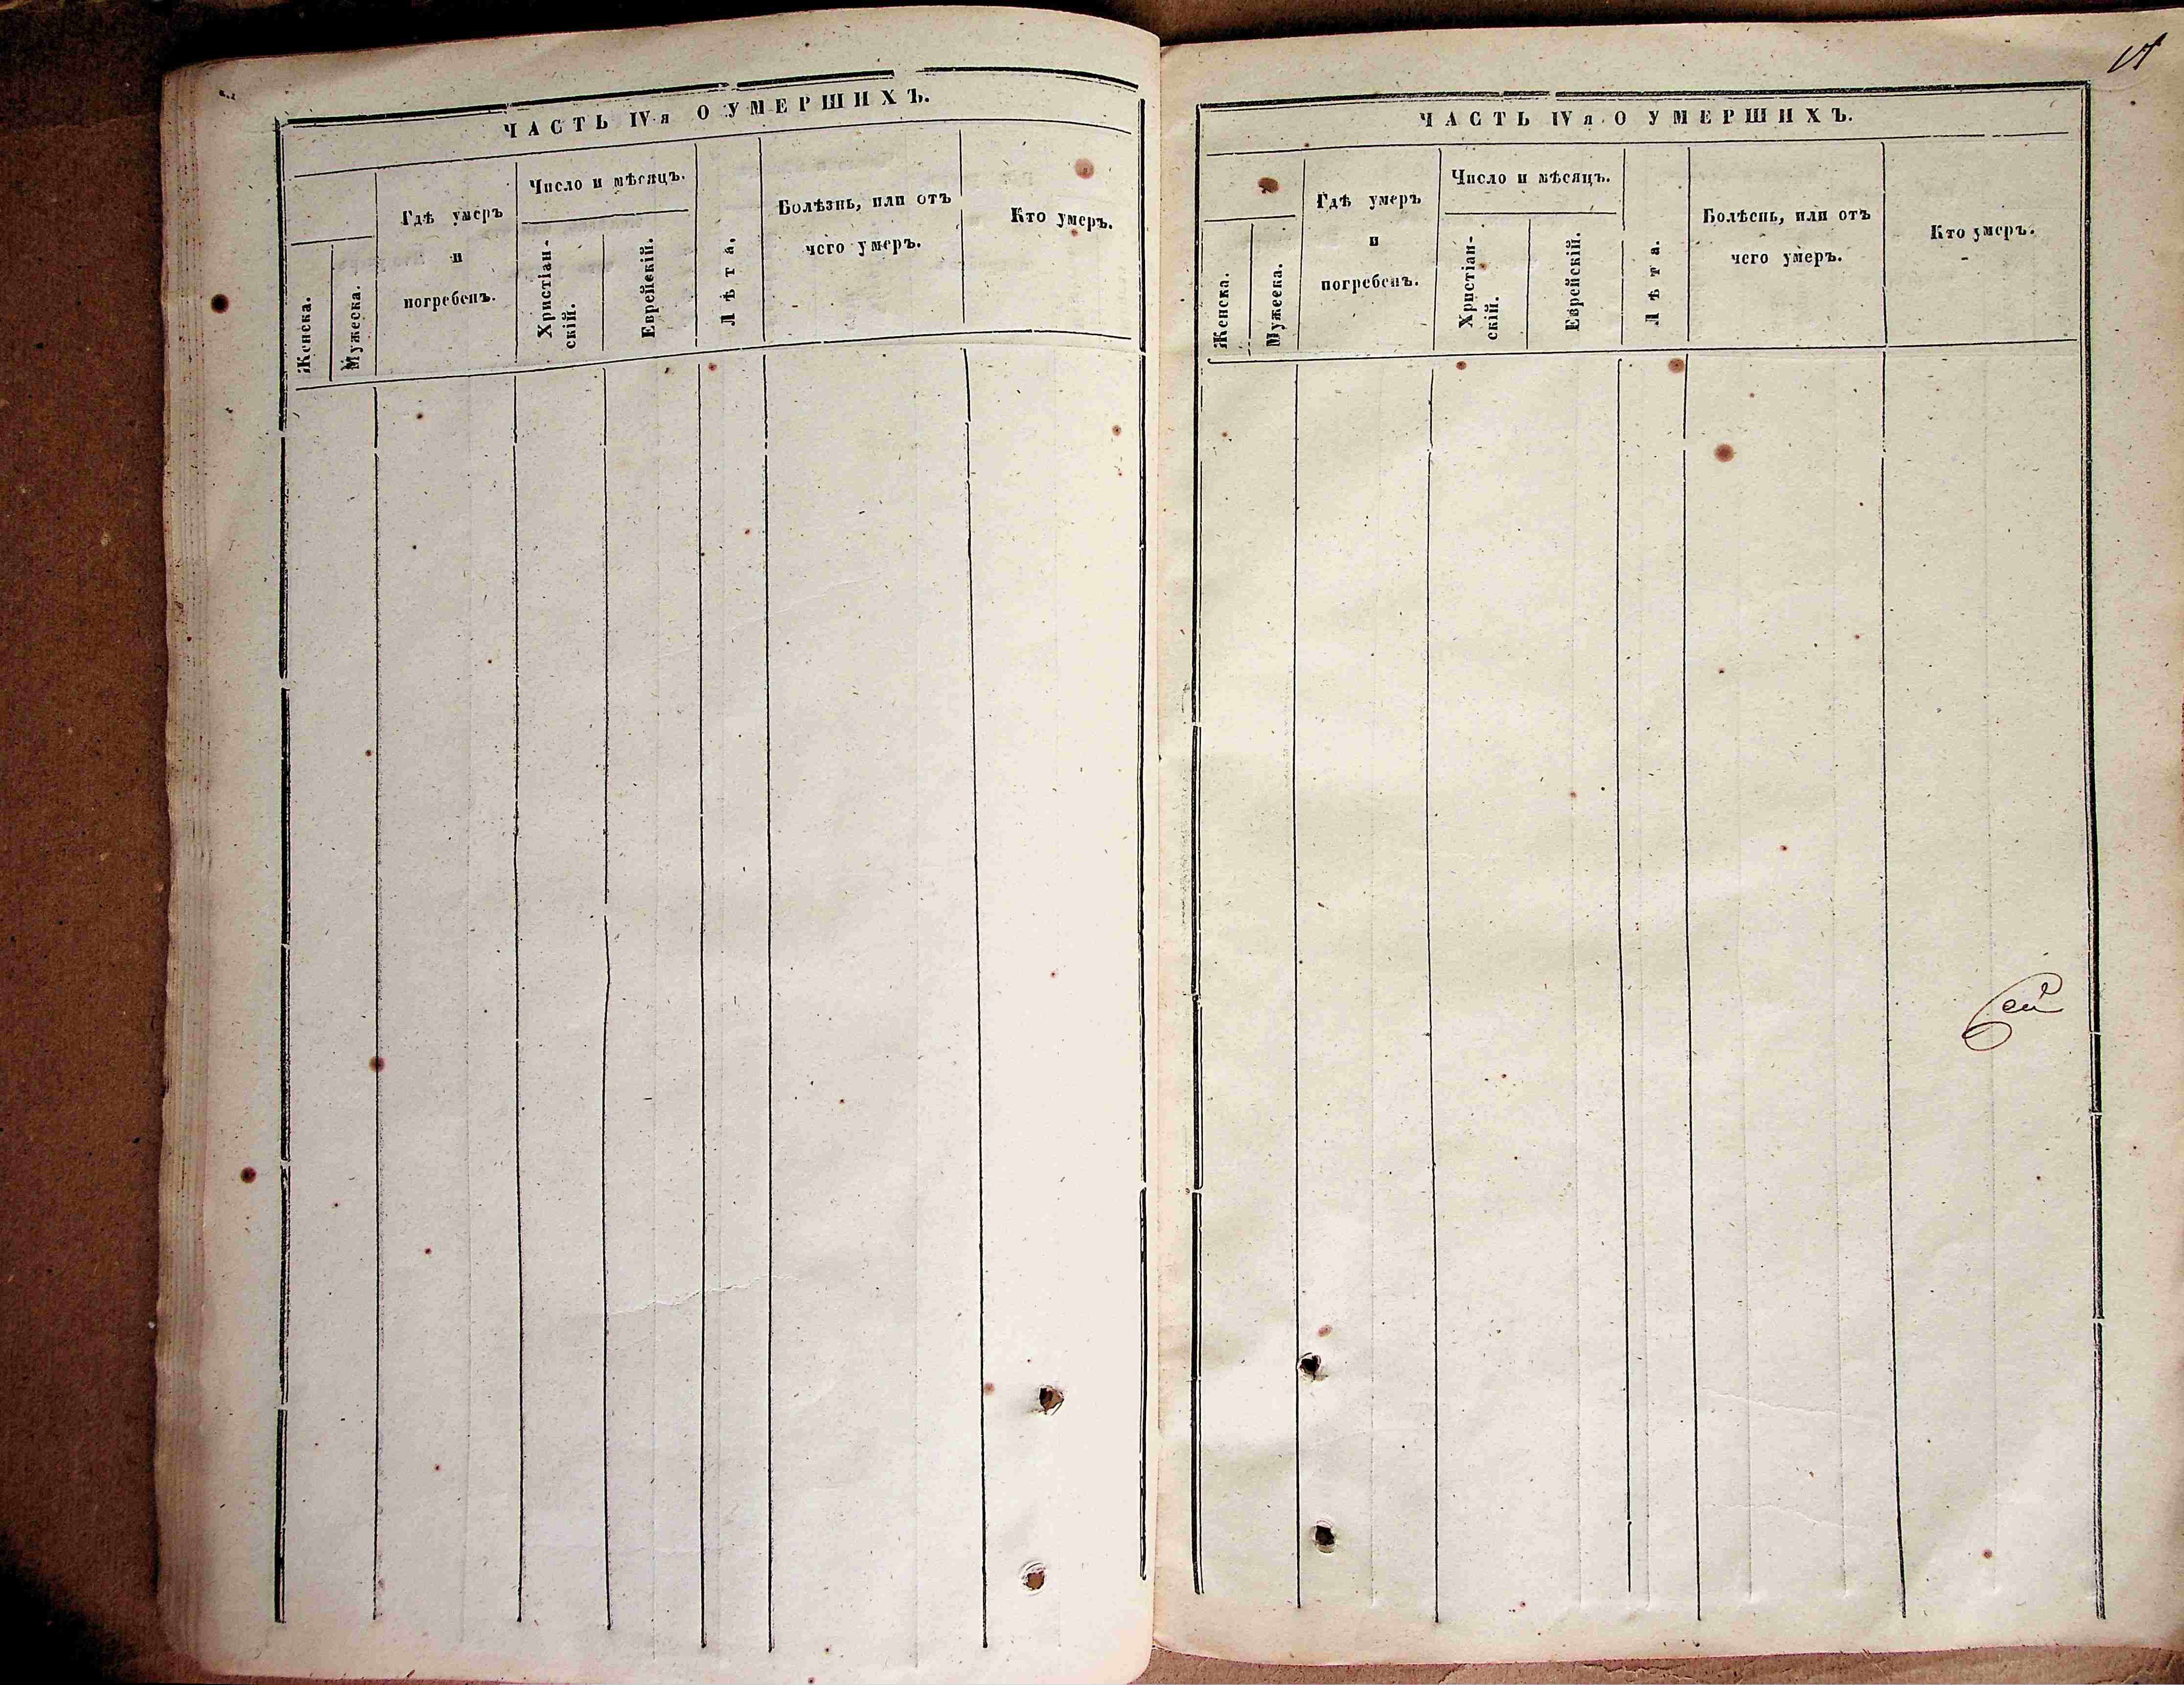 ЧАСТЬ IV-я О УМЕРШИХЪ.
Женска.
Мужеска.
Гдѣ умеръ
и
погребенъ.
Число и мѣсяцъ.
Христіан-
скій.
Еврейскій.
Лѣта.
Болѣзнь, или отъ
чего умеръ.
Кто умеръ.
ЧАСТЬ IV я О УМЕРШИХЪ.
Женска.
Мужеска.
Гдѣ умеръ
и
погребенъ.
Число и мѣсяцъ.
Христіан-
скій.
Еврейскій.
Лѣта.
Болѣснь, или отъ
чего умеръ.
Кто умеръ.
сей